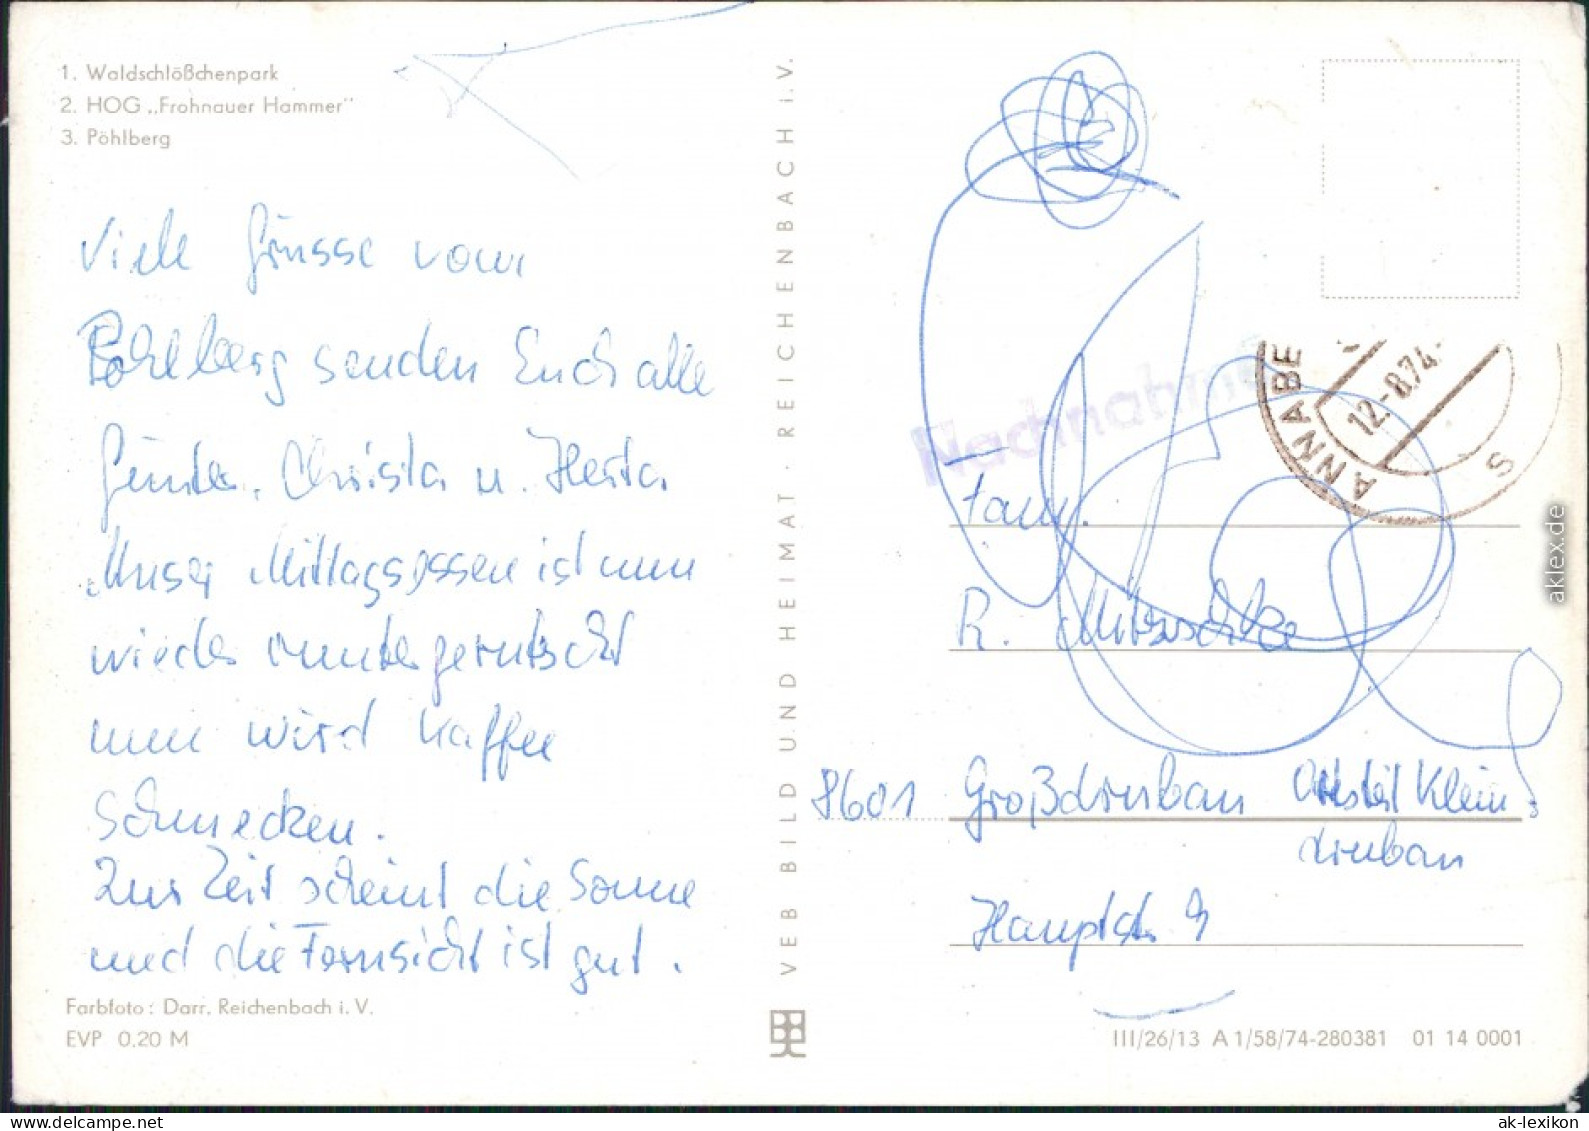 1. Waldschlößchenpark
2. HOG „Frohnauer Hammer"
3. Pöhlberg
Viele Grüsse vom
Pöhlberg senden Euch alle
Günter, Christa u. Herta.
Unser Mittagsessen ist nun
wieder runtergerutscht
nun wird Kaffee
schmecken.
Zur Zeit scheint die Sonne
und die Fernsicht ist gut.
Farbfoto: Darr, Reichenbach i. V.
EVP 0,20 M
VEB BILD UND HEIMAT · REICHENBACH i. V.
Nachnahme
ANNABE
12.-8.74-
S
Fam.
R. Mitzschke
8601 Großdrubau Ortsteil Klein-
drubau
Hauptstr. 9
III/26/13 A 1/58/74-280381 01 14 0001
aklex.de
www.delcampe.net
ak-lexikon